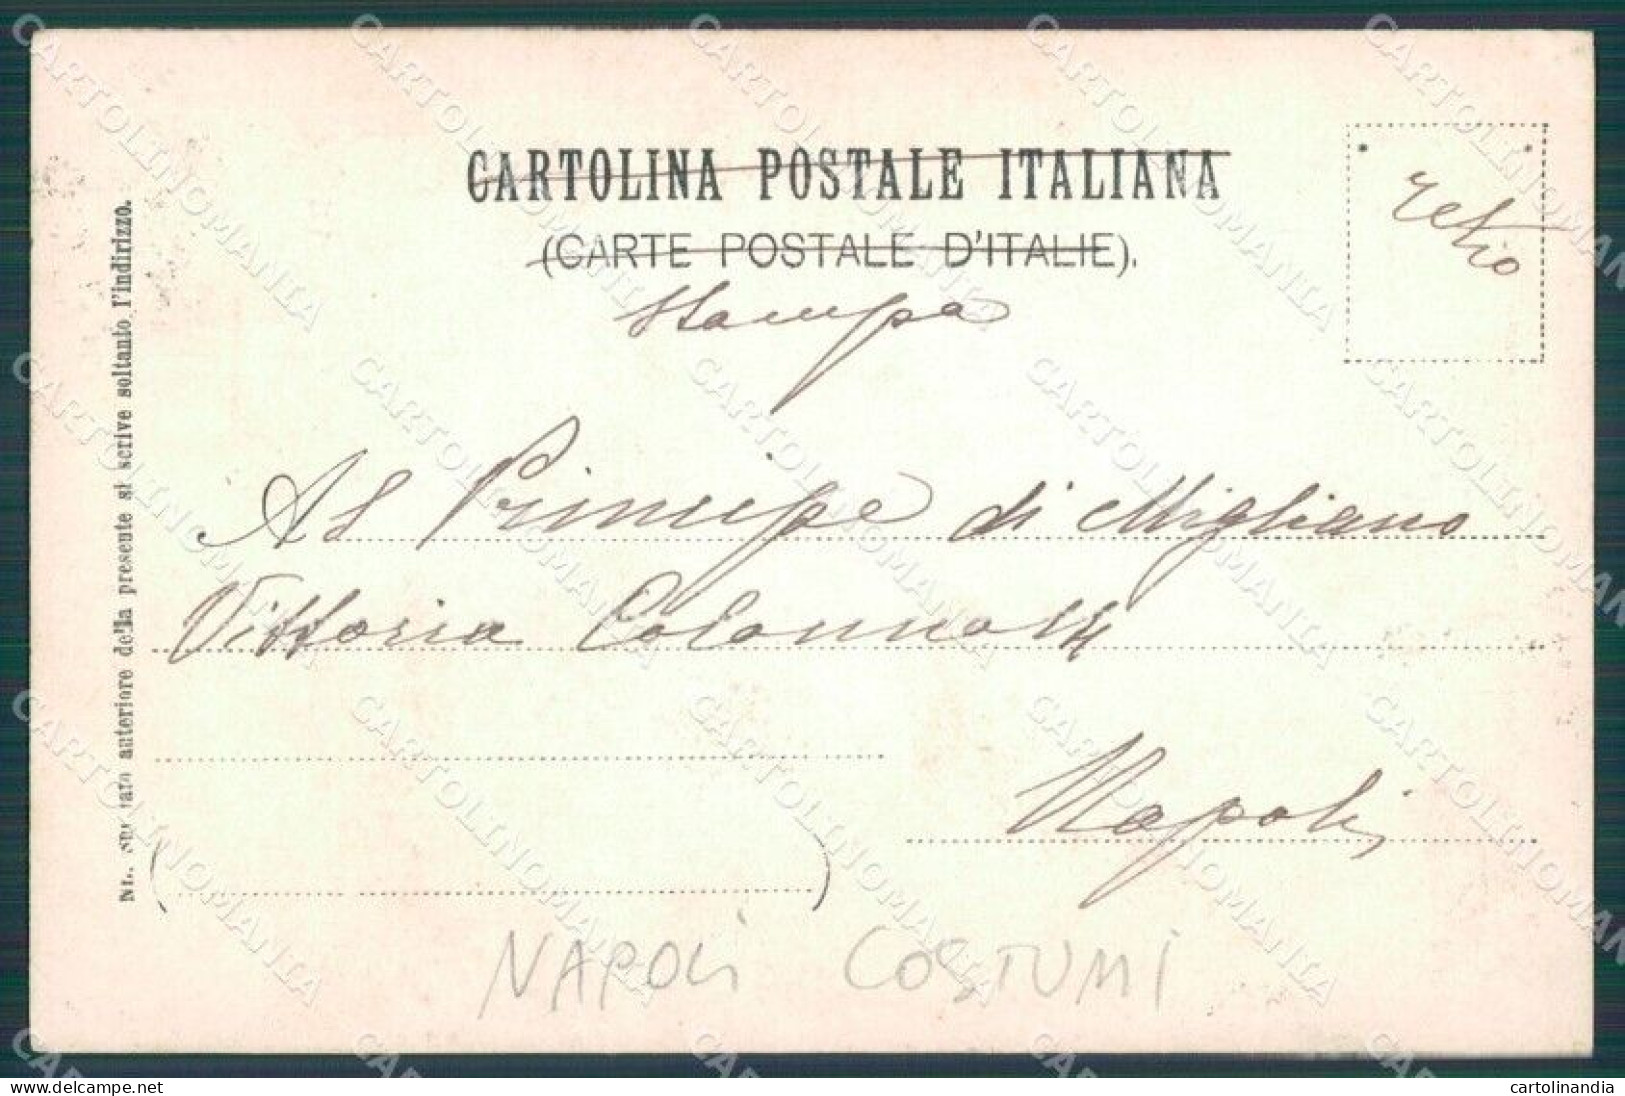 CARTOLINA POSTALE ITALIANA
(CARTE POSTALE D'ITALIE).
Stampa
retro
Al Principe di Migliano
Vittoria Colonna
Napoli
anteriore della presente si scrive soltanto l'indirizzo.
NAPOLI COSTUMI
CARTOLINOMANIA
delcampe.net
cartolinandia